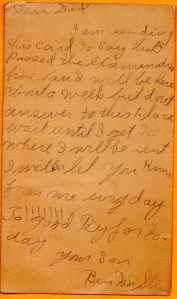 Dear Dad
I am sending
this card to say that I
Passed the Examination
fine and will be here
about a week but dont
answer to this Place
wait until I get to
where I will be sent
I will let You Know
from me every day
To Good By for to-
day
Your Son